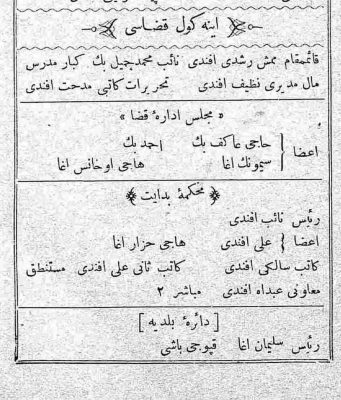 اینه كول قضاسی
قائممقام ممش رشدی افندی نائب محمد جمیل بك كبار مدرس
مال مدیری نظیف افندی تحریرات كاتبی مدحت افندی
« مجلس اداره قضا »
اعضا { حاجی عاكف بك احمد بك
سیمونك اغا هاجی اوخانس اغا
محكمهٔ بدایت
رئیس نائب افندی
اعضا { علی افندی هاجی حزار اغا
كاتب سالكی افندی كاتب ثانی علی افندی مستنطق
معاونی عبداه افندی مباشر ٢
[ دائرهٔ بلدیه ]
رئیس سلیمان اغا قپوجی باشی